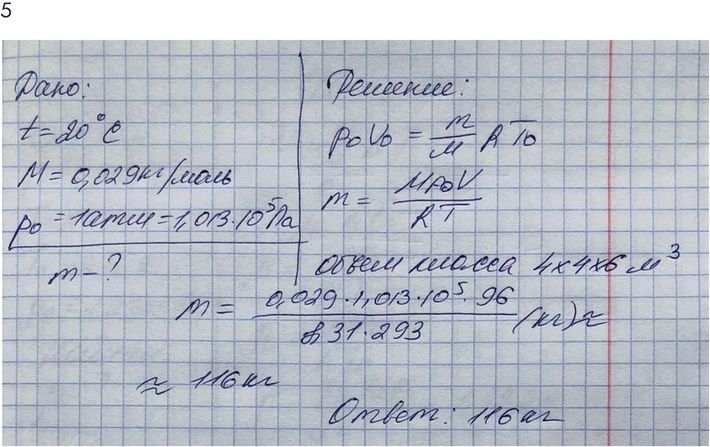 5
Дано:
t = 20°C
M = 0,029 кг/моль
p₀ = 1атм = 1,013·10⁵Па
m – ?
Решение:
p₀V₀ = m/M RT₀
m = Mp₀V/RT
Объем класса 4х4х6 м³
m = 0,029·1,013·10⁵·96 / 8,31·293 (кг) ≈
≈ 116 кг
Ответ: 116 кг